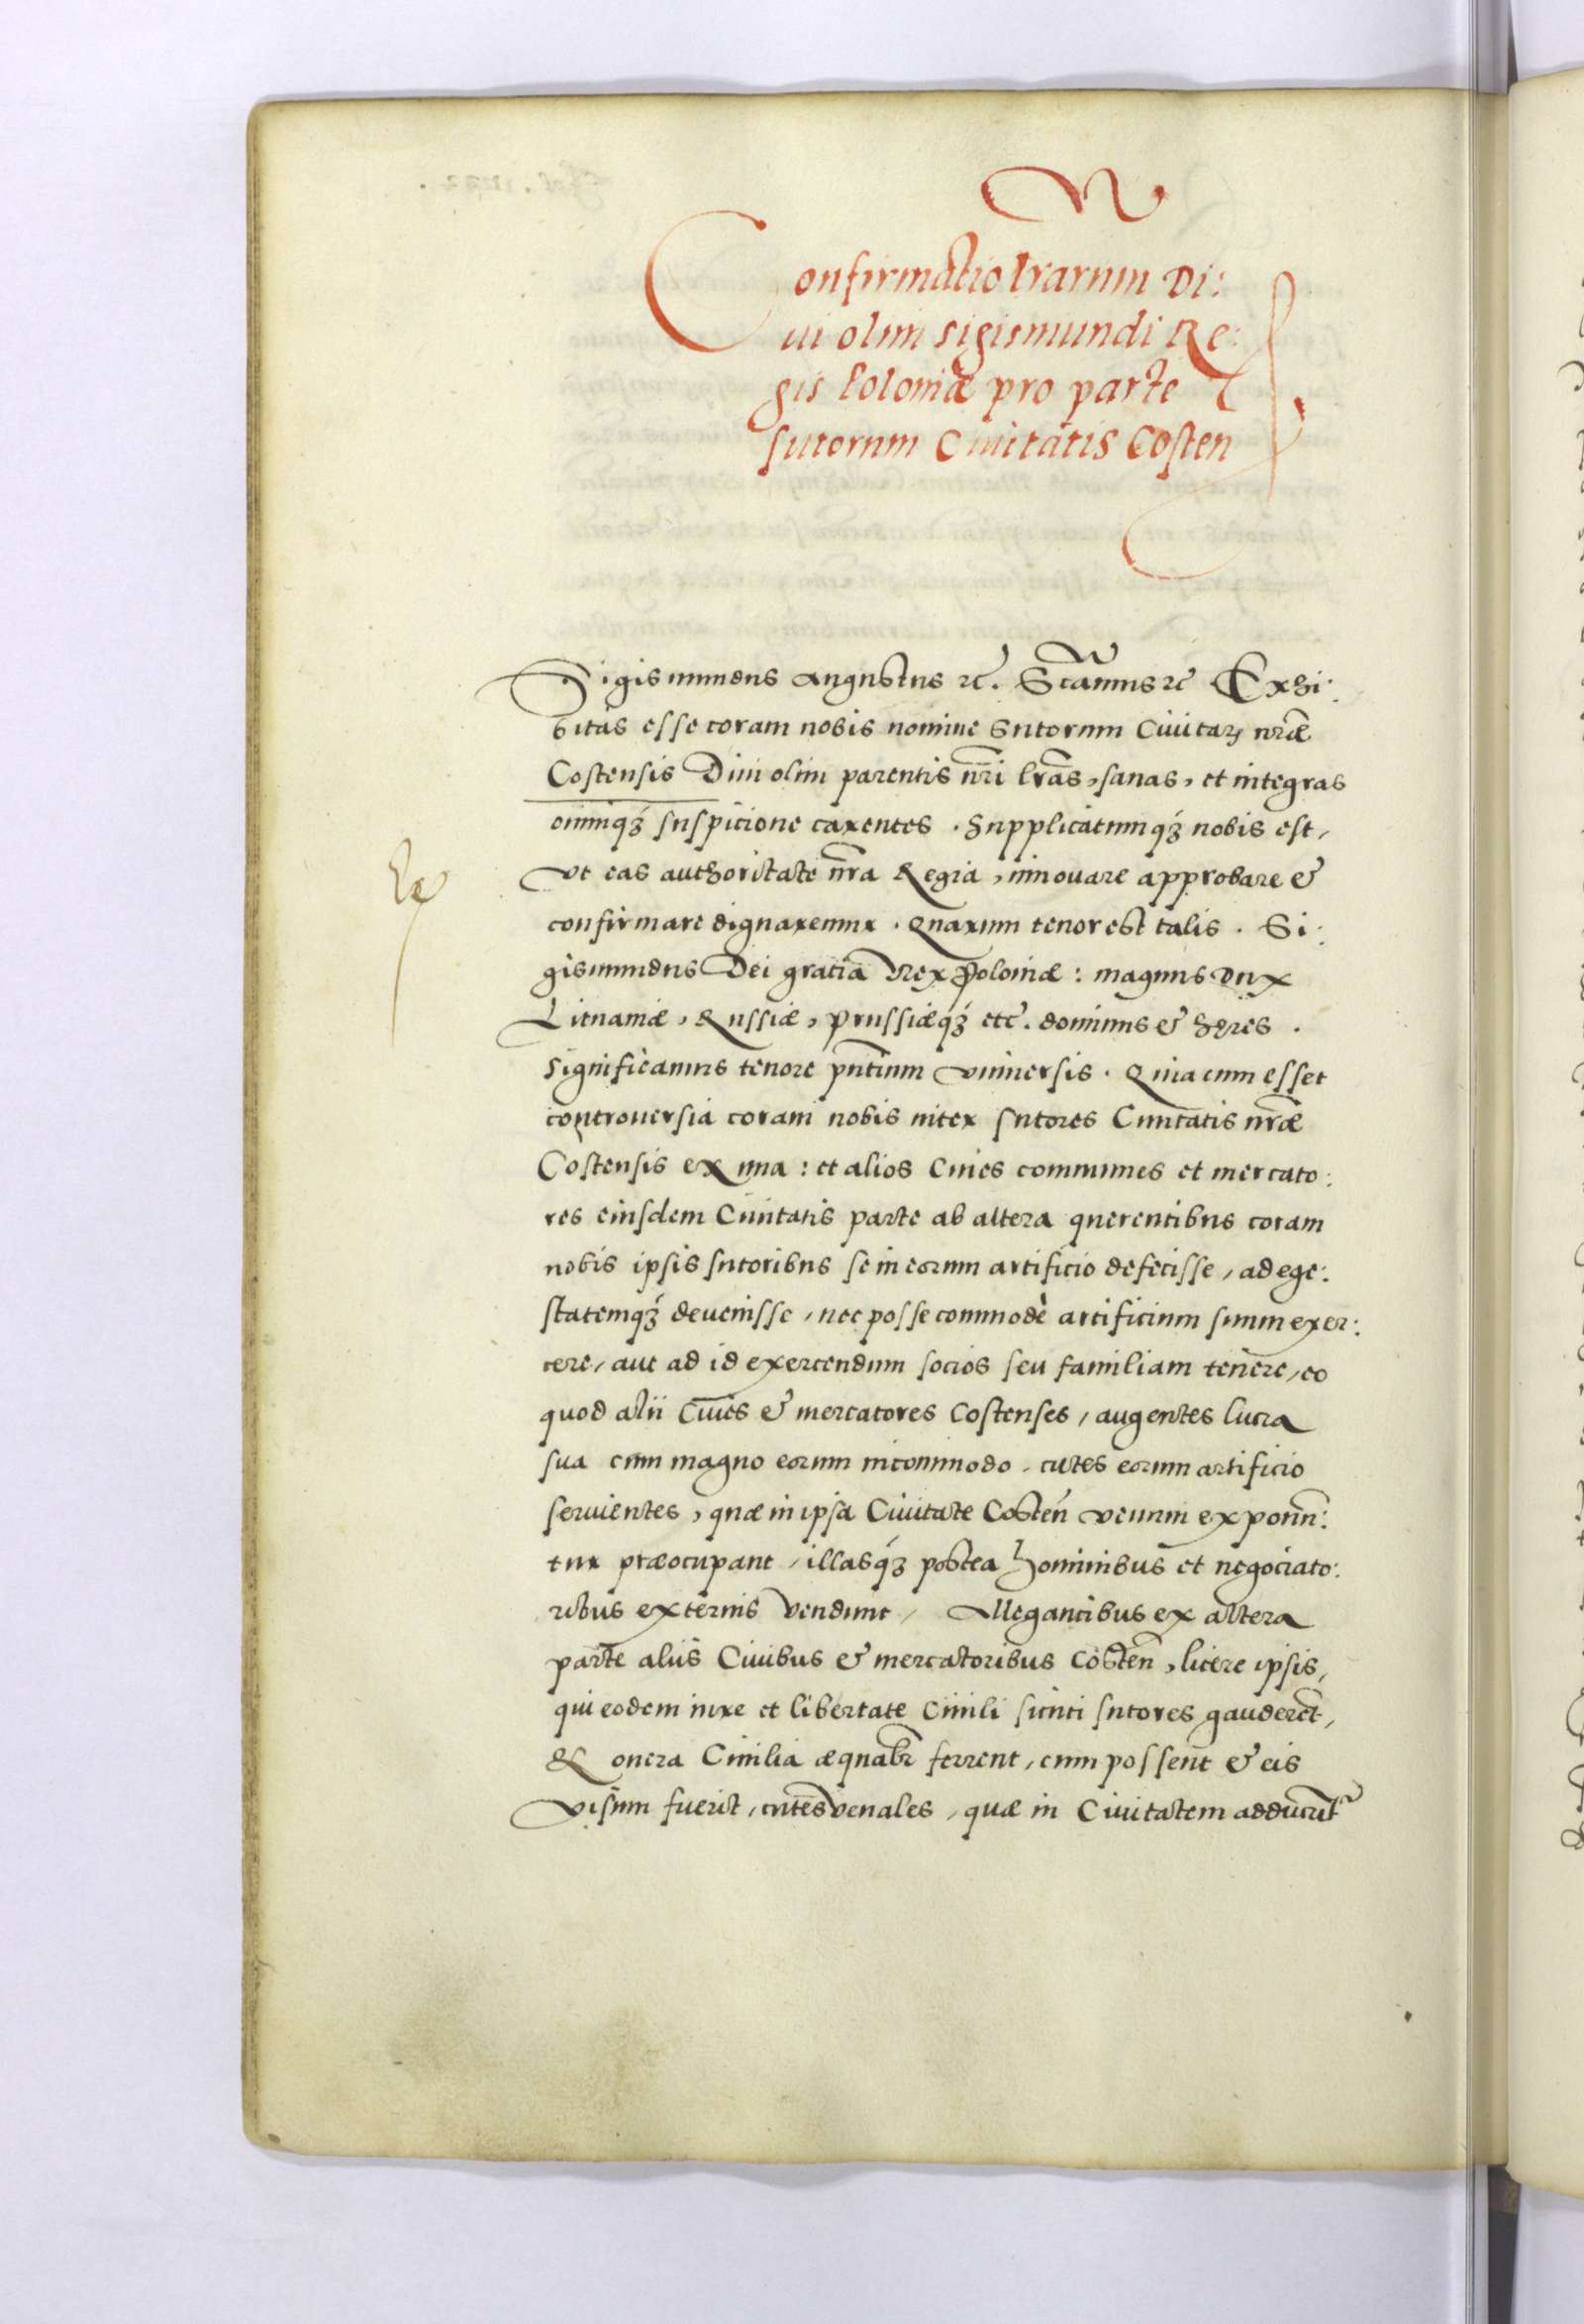 Confirmatio lrarum Di:
ui olim Sigismundi Re:
gis Poloniæ pro parte
sutorum Ciuitatis Costen
Sigismundus Augustus rc. Scāmus rc Exhi:
bitas esse coram nobis nomine Sutorum Ciuitatꝭ nr̃æ
Costensis Diui olim parentis nr̃i lrãs, sanas, et integras
omniqꝫ suspicione carentes. Supplicatumqꝫ nobis est,
vt eas authoritate nr̃a Regia, innouare approbare &
confirmare dignaremur. Quarum tenor est talis. Si:
gismundus Dei gratia Rex Poloniæ: magnus Dux
Lituaniæ, Russiæ, Prussiæqꝫ etc. dominus & heres.
Significamus tenore pñtium vniuersis. Quia cum esset
controuersia coram nobis inter sutores Ciuitatis nr̃æ
Costensis ex una: et alios Ciues communes et mercato:
res eiusdem Ciuitatis parte ab altera querentibus coram
nobis ipsis sutoribus se in eorum artificio defecisse, ad ege:
statemqꝫ deuenisse, nec posse commodè artificium suum exer:
cere, aut ad id exercendum socios seu familiam tenere, eo
quod alii Ciues & mercatores Costenses, augentes lucra
sua cum magno eorum incommodo, cutes eorum artificio
seruientes, quæ in ipsa Ciuitate Costeñ venum exponũ:
tur præocupant, illasqꝫ postea hominibus et negociato:
ribus externis vendunt, Allegantibus ex altera
parte aliis Ciuibus & mercatoribus Costeñ, licere ipsis,
qui eodem iure et libertate Ciuili sicuti sutores gauderẽt,
& onera Ciuilia æquabr̃ ferrent, cum possent & eis
visum fuerit, cutes venales, quæ in Ciuitatem adducũt